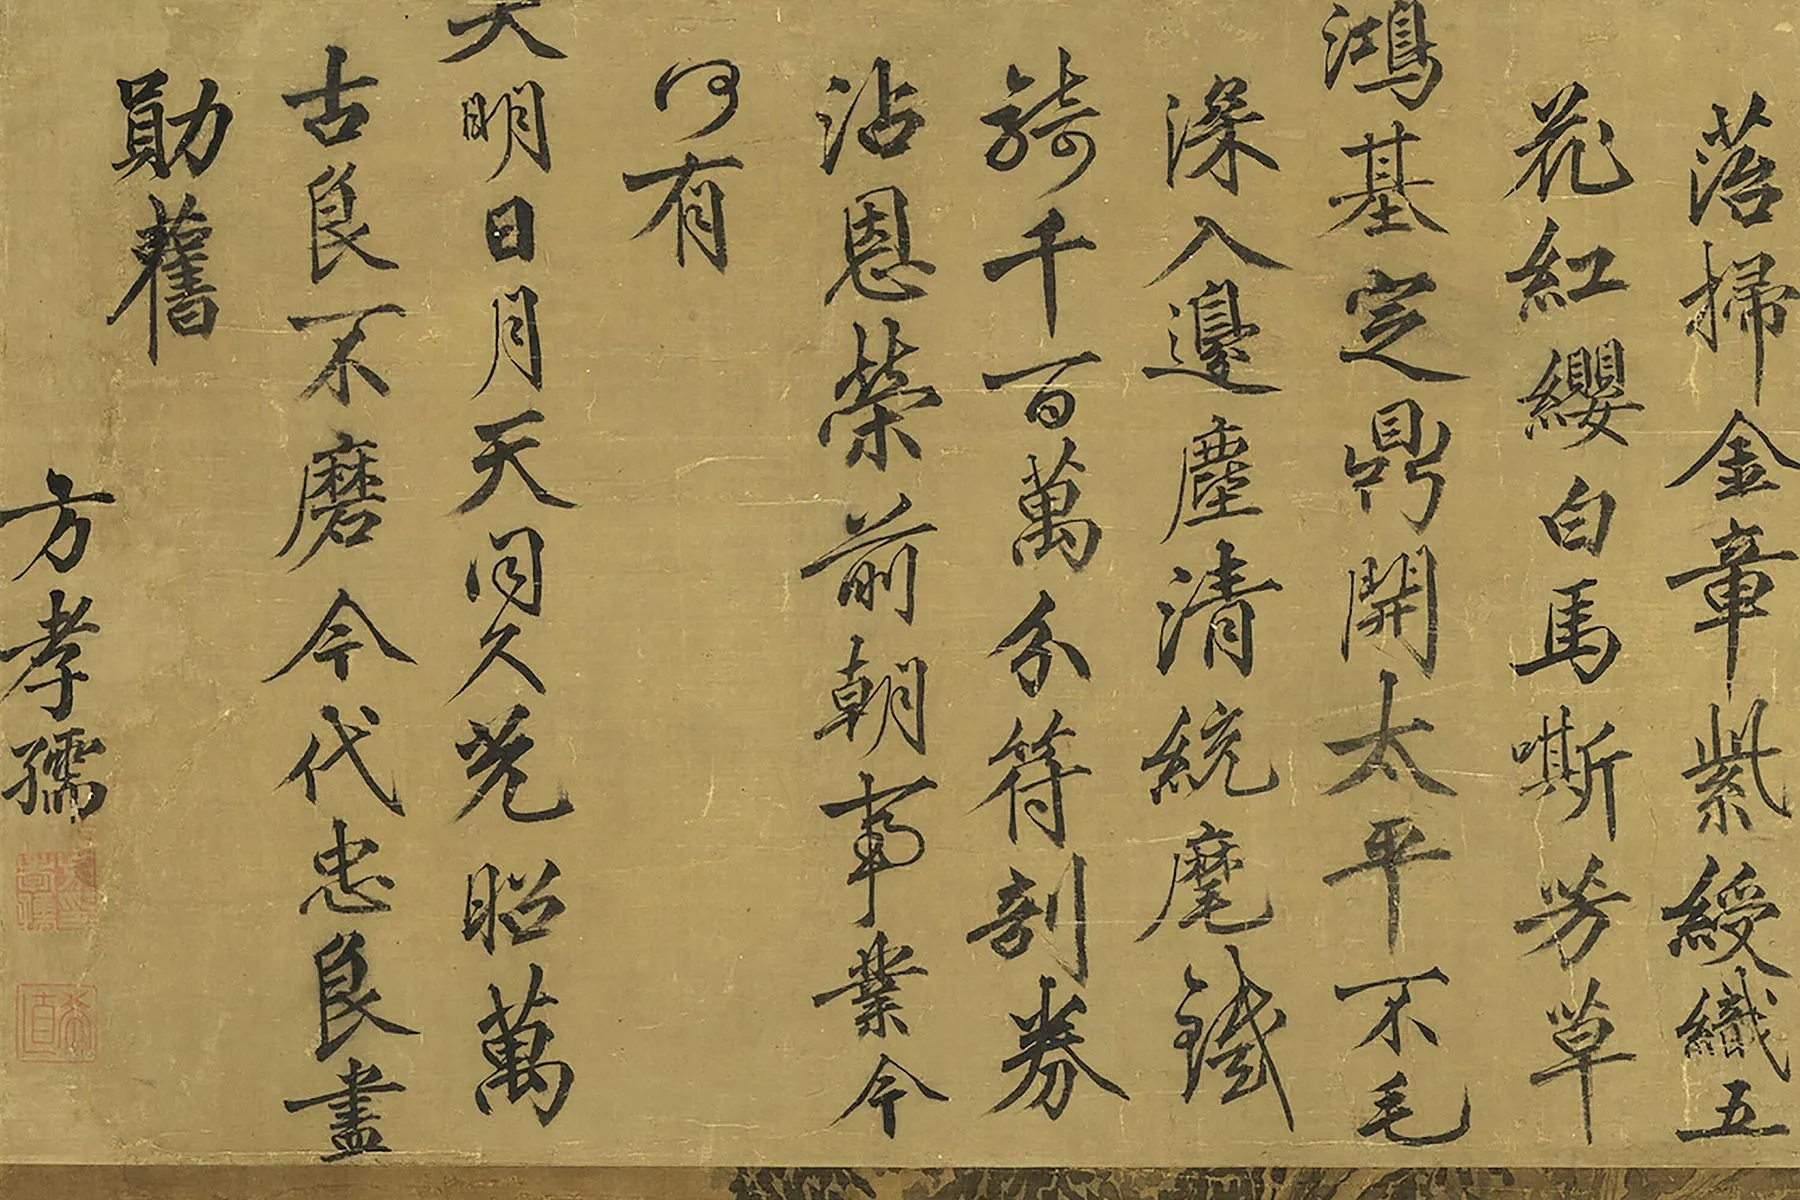 落掃金章紫綬織五
花紅纓白馬嘶芳草
鴻基定鼎開太平不毛
深入邊塵清統麾鐵
騎千百萬分符剖券
沾恩榮前朝事業今
何有
大明日月天同久光昭萬
古良不磨今代忠良盡
勛舊
方孝孺